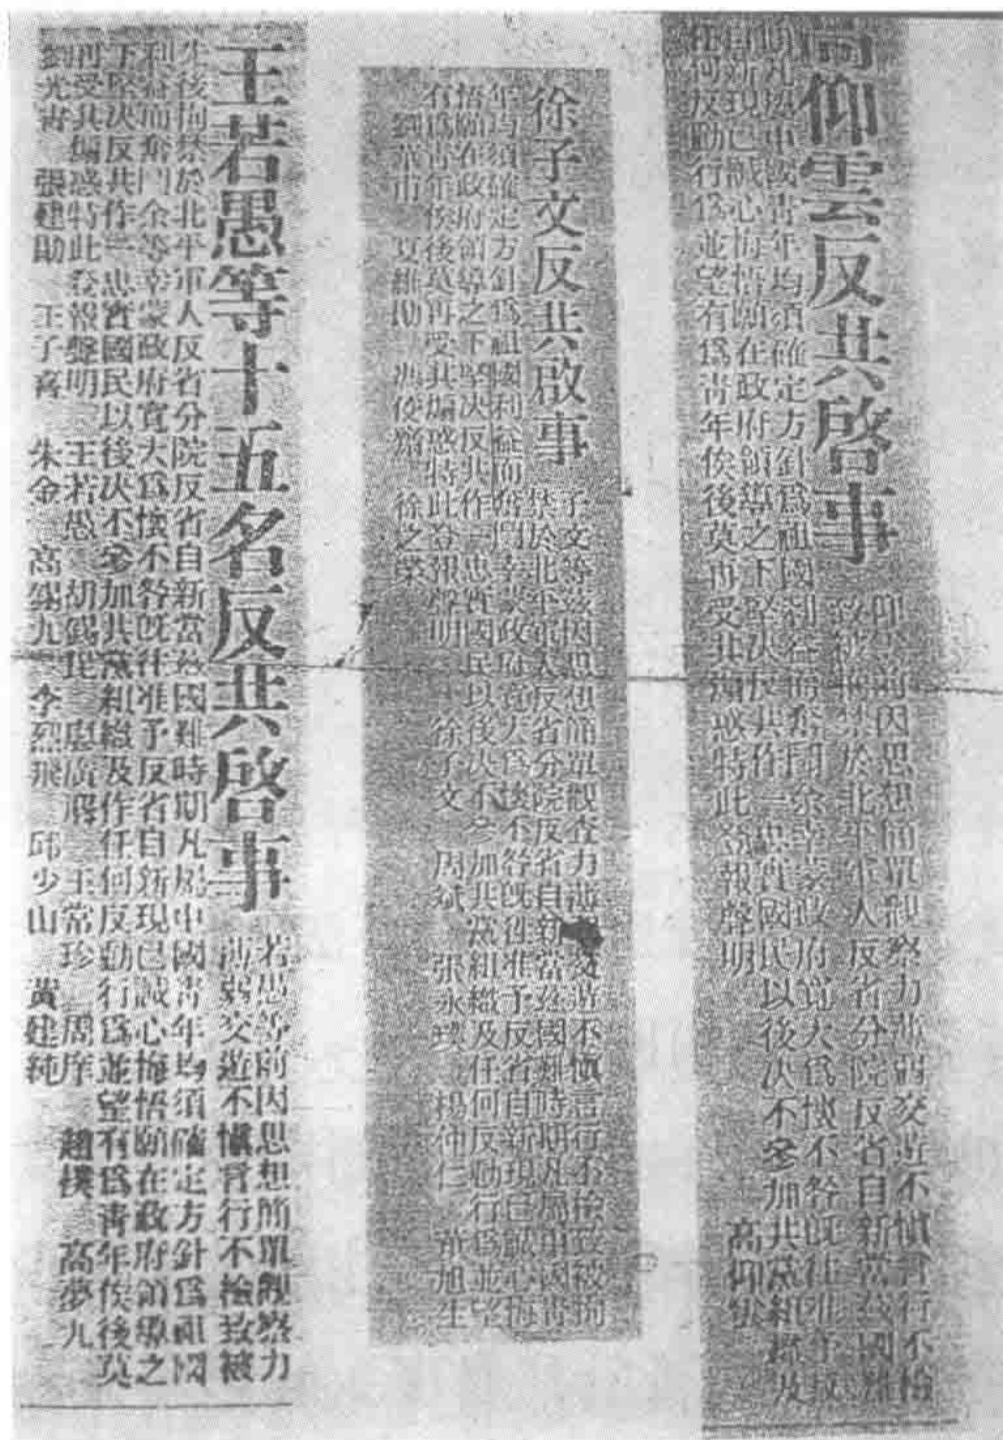 高仰雲反共啓事
仰雲前因思想簡單觀察力薄弱交遊不慎言行不檢
致被拘禁於北平軍人反省分院反省自新當茲國難
時凡屬中國青年均須確定方針爲祖國利益而奮鬥余幸蒙政府寬大爲懷不咎既往准予反省
自新現已誠心悔悟願在政府領導之下堅決反共作一忠實國民以後決不參加共黨組織及
任何反動行爲並望有爲青年俟後莫再受其煽惑特此登報聲明 高仰雲
徐子文反共啟事
子文等茲因思想簡單觀查力薄弱交遊不慎言行不檢致被拘
禁於北平軍人反省分院反省自新當茲國難時期凡屬中國青
年均須確定方針爲祖國利益而奮鬥幸蒙政府寬大爲懷不咎既往准予反省自新現已誠心悔
悟願在政府領導之下堅決反共作一忠實國民以後決不參加共黨組織及任何反動行爲並望
有爲青年俟後莫再受其煽惑特此登報聲明 徐子文 周斌 張永 楊仲仁 董旭生
劉華甫 夏維勛 馮俊齋 徐之榮
王若愚等十五名反共啓事
若愚等前因思想簡單觀察力
薄弱交遊不慎言行不檢致被
先後拘禁於北平軍人反省分院反省自新當茲國難時期凡屬中國青年均須確定方針爲祖國
利益而奮鬥余等幸蒙政府寬大爲懷不咎既往准予反省自新現已誠心悔悟願在政府領導之
下堅決反共作一忠實國民以後決不參加共黨組織及作任何反動行爲並望有爲青年俟後莫
再受其煽惑特此登報聲明 王若愚 胡錫 廣 王常珍 周 趙樸 高夢九
劉光 張建勛 王子喜 朱金 高錫九 李烈飛 邱少山 黃建純